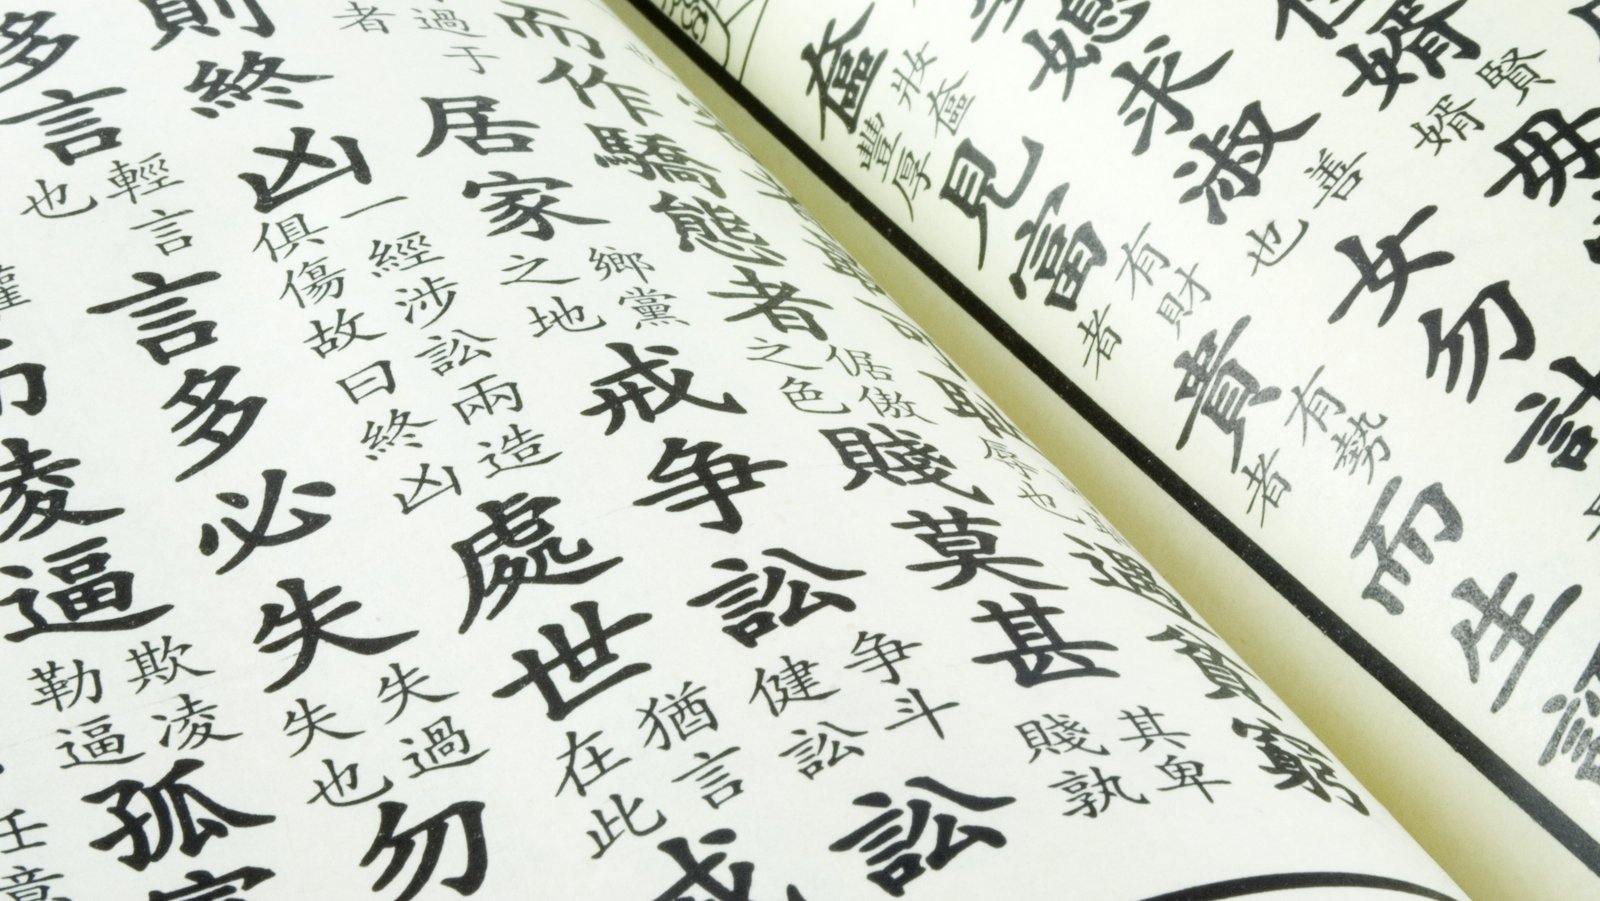 佳婿賢婿毋
媳求淑善也女勿計
奩妝奩豐厚見富有財者貴有勢者而生諂
恥辱也遇貧窮
而作驕態者倨傲之色賤莫甚其卑賤孰
過于者居家鄉黨之地戒争訟争斗健訟訟
則終凶一經涉訟兩造俱傷故曰終凶處世猶言在此戒
多言輕言也言多必失失過失也勿
而凌逼欺凌勒逼孤寡
任意